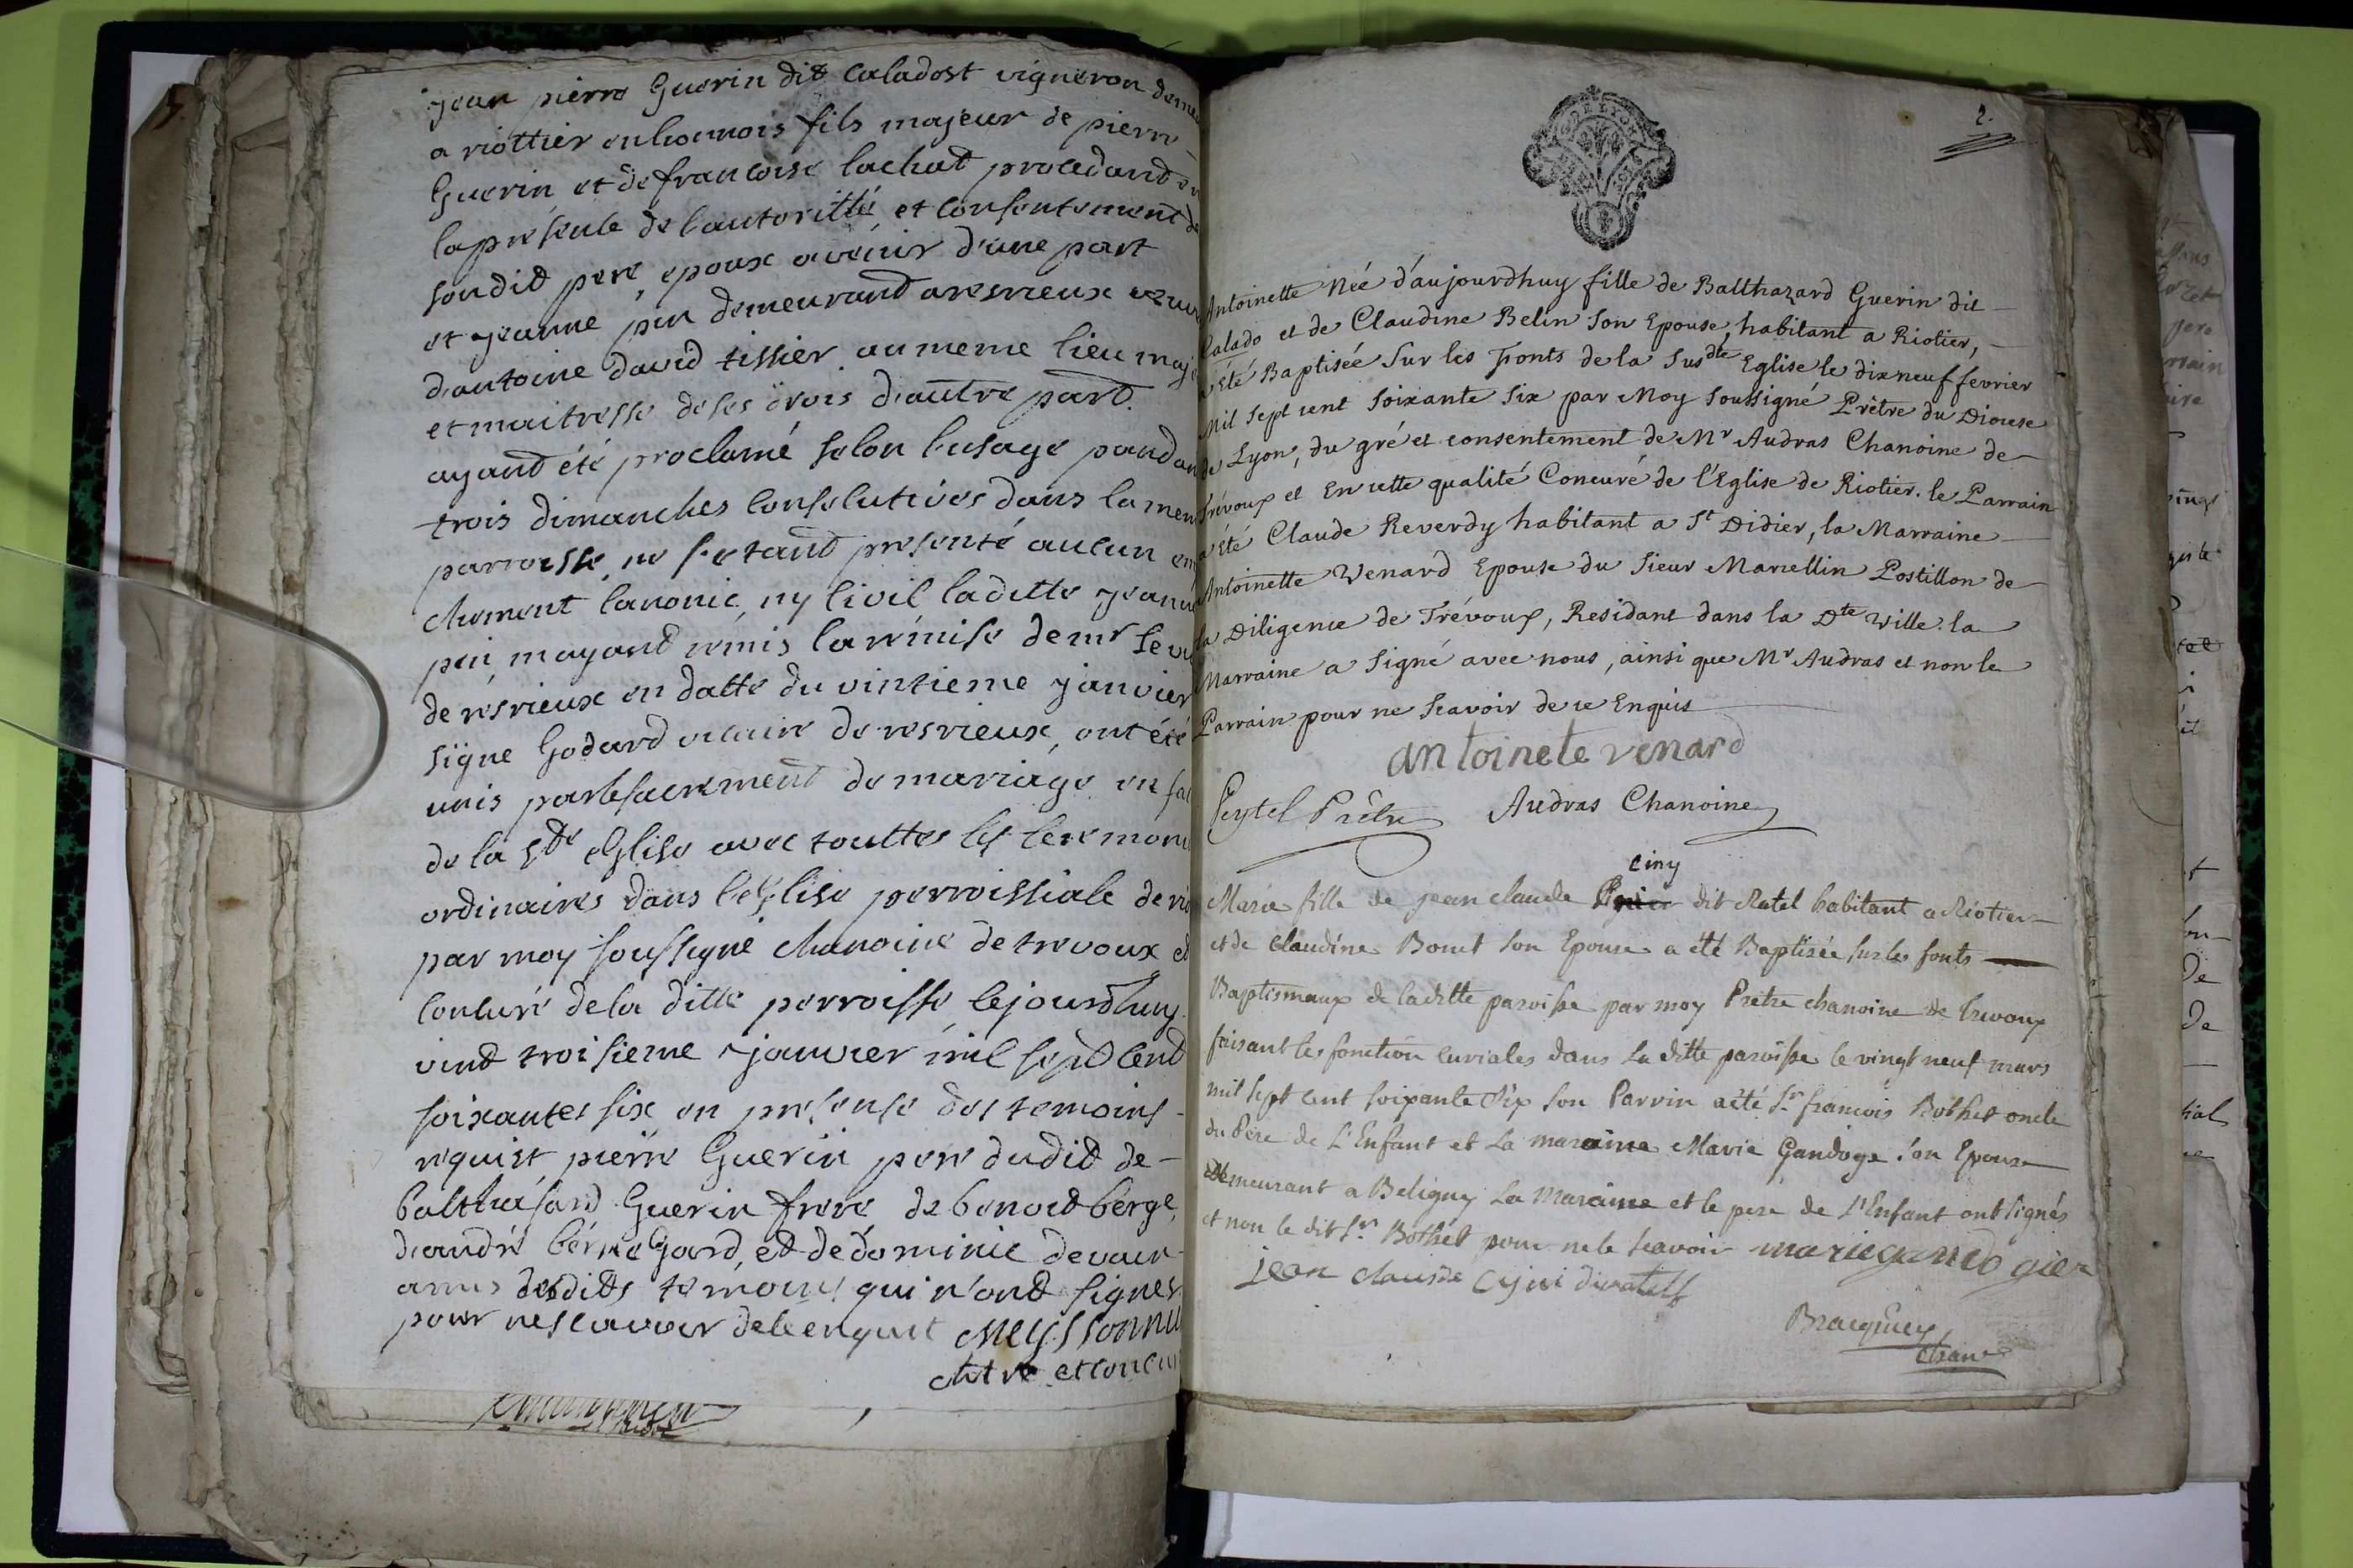 jean pierre Guerin dit Caladost vigneron deme
a riottier en lionnois fils majeur de pierre
Guerin et de francoise lachat procedand
la présente de l'autoritté et consentement de
son dit pere, epoux avenir d'une part
et jeanne pin demeurand a resrieux
d'antoine david tissier au meme lieu maj
et maitresse de ses drois d'autre part.
ayand été proclamé selon l'usage pandan
trois dimanches consecutives dans la mem
parroisse, ne s'etand presenté aucun em
chement canonic, ny civil laditte jeanne
pin, m'ayand remis la remise de mr le vi
de resrieux en datte du vintieme janvier
signe Godard vicaire de resrieux, ont été
unis par le sacrement de mariage en fa
de la Ste eglise avec touttes les ceremoni
ordinaires dans l'eglise perroissiale de rio
par moy soussigné chanoine de trevoux et
concuré de la ditte perroisse cejourdhuy
vind troisieme janvier mil sept cend
soixantes six en presense des temoins
requist pierre Guerin pere dudit de
balthasard Guerin frere de benoid berge
d'andré bernegard, et de dominic devau
amis desdits temoins qui n'ond signer
pour ne scavoir de ce enquit Meyssonnie
chtre et concu
2.
Antoinette Née d'aujourdhuy fille de Balthazard Guerin dit
Calado et de Claudine Belin Son Epouse, habitant a Riotier,
a été Baptisée Sur les Fonts de la Susdte Eglise le dix neuf fevrier
Mil Sept cent Soixante Six par Moy Soussigné Prêtre du Diocese
de Lyon, du gré et consentement de Mr Audras Chanoine de
Trévoux et En cette qualité Concuré de l'Eglise de Riotier. le Parrain
a été Claude Reverdy habitant a St Didier, la Marraine
Antoinette Wenard Epouse du Sieur Marcellin Postillon de
la Diligence de Trévoux, Residant dans la Dte Ville. la
Marraine a Signé avec nous, ainsi que Mr Audras et non le
Parrain pour ne Scavoir de ce Enquis
antoinete venard
Peytel Prêtre Audras Chanoine
ciny
Marie fille de jean claude dit Ratel habitant a Riotier
et de Claudine Bonet Son Epouse a été Baptisée sur les fonts
Baptismaux de laditte paroisse par moy Pretre chanoine de Trevoux
faisant les fonction curiales dans la ditte paroisse le vingt neuf mars
mil sept cent soixante Six Son Parrin a été Sr francois Bothet oncle
du Pere de L'Enfant et La maraine Marie Gandoge Son Epouse
demeurant a Beligny La Maraine et le pere de L'Enfant ont signés
et non le dit Sr. Bothet pour ne le scavoir marie gandogier
jean claude
Bracquiey
chane